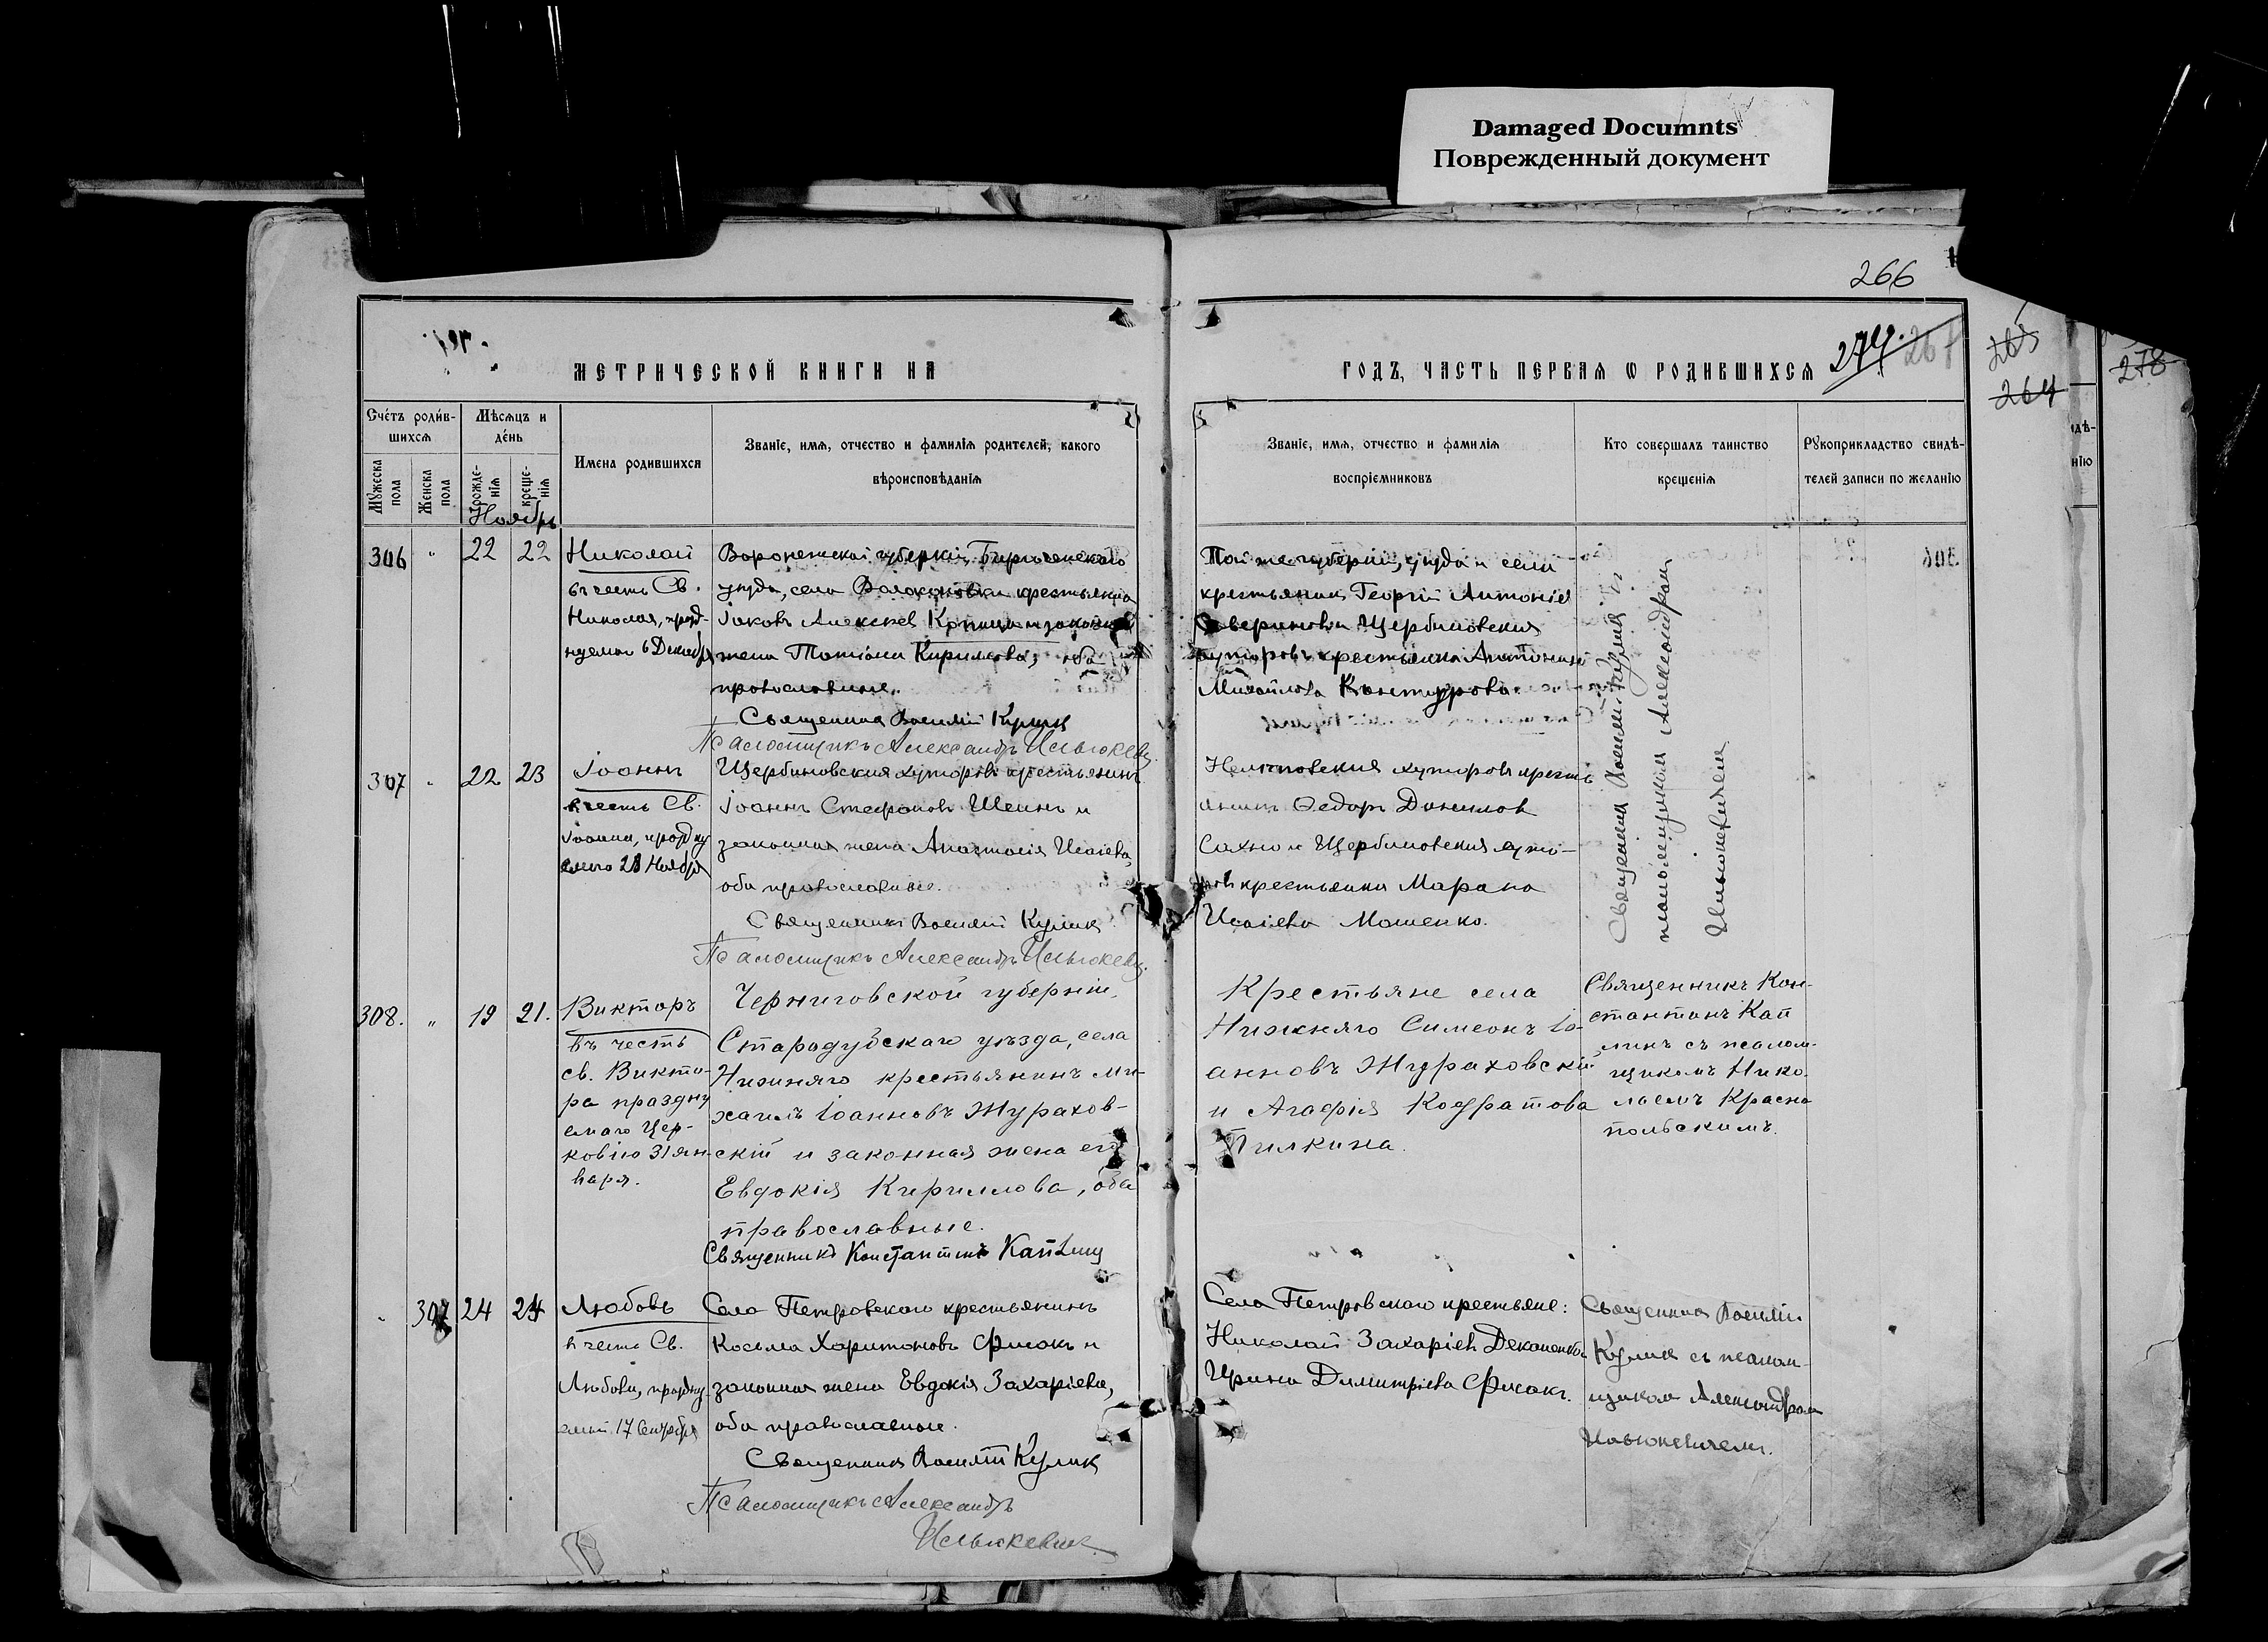 Damaged Documnts
Поврежденный документ
266
274. 267
265
264
278
МЕТРИЧЕСКОЙ КНИГИ НА
ГОДЪ, ЧАСТЬ ПЕРВАЯ Ѡ РОДИВШИХСЯ
Счетъ родив-
шихся
Мужеска пола
Женска пола
Мѣсяцъ и
день
рожде-
нія
креще-
нія
Ноябрь
Имена родившихся
Званіе, имя, отчество и фамилія родителей, какого
вѣроисповѣданія
Званіе, имя, отчество и фамилія
воспріемниковъ
Кто совершалъ таинство
крещенія
Рукоприкладство свидѣ-
телей записи по желанію
306 " 22 22
Николай
въ честь Св.
Николая, празд-
нуемаго 6 Декабря
Воронежской губерніи, Бирюченскаго
уѣзда, села Волоконовки крестьянинъ
Іаковъ Алексѣевъ и законная
жена Татіана Кириллова, оба
православные.
Священникъ Василій Кулик
Псаломщикъ Александръ
Той же губерніи, уѣзда и села
крестьянинъ Георгій Антоніев
Щербиновскихъ
хуторовъ крестьянка Антонина
Михайлова Кантурова.
Священникъ Василій Куликъ съ
псаломщикомъ Александромъ
307 " 22 23
Іоаннъ
въ честь Св.
Іоанна, праздну
емаго 28 Ноября
Щербиновскихъ хуторовъ крестьянинъ
Іоаннъ Стефановъ Шеинъ и
законная жена Анастасія Исаіева,
оба православные.
Священникъ Василій Куликъ
Псаломщикъ Александръ
хуторовъ кресть
янинъ Ѳедоръ Даниловъ
Сахно и Щербиновскихъ хуто-
ровъ крестьянка
Исаіева Мошенко.
308. " 19 21.
Викторъ
въ честь
св. Викто-
ра праздну
емаго Цер-
ковію 31 ян-
варя.
Черниговской губерніи,
Стародубскаго уѣзда, села
Нижняго крестьянинъ Ми-
хаилъ Іоанновъ Жураховъ-
скій и законная жена его
Евдокія Кириллова, оба
православные.
Священникъ Константинъ
Крестьяне села
Нижняго Симеонъ Іо-
анновъ Жураховскій
и Агафія Кодратова
Пилкина.
Священникъ Кон-
стантинъ Кап
линъ съ псалом-
щикомъ Нико-
лаемъ Красно
польскимъ.
" 307 24 24
Любовь
въ честь Св.
Любови, праздну-
емой 17 Сентября
Села Петровскаго крестьянинъ
Косьма Харитоновъ Фисакъ и
законная жена Евдокія Захаріева,
оба православные.
Священникъ Василій Куликъ
Псаломщикъ Александръ
Села Петровскаго крестьяне:
Николай Захаріевъ
Ирина Димитріева Фисакъ.
Священникъ Василій
Куликъ съ псалом-
щикомъ Александромъ